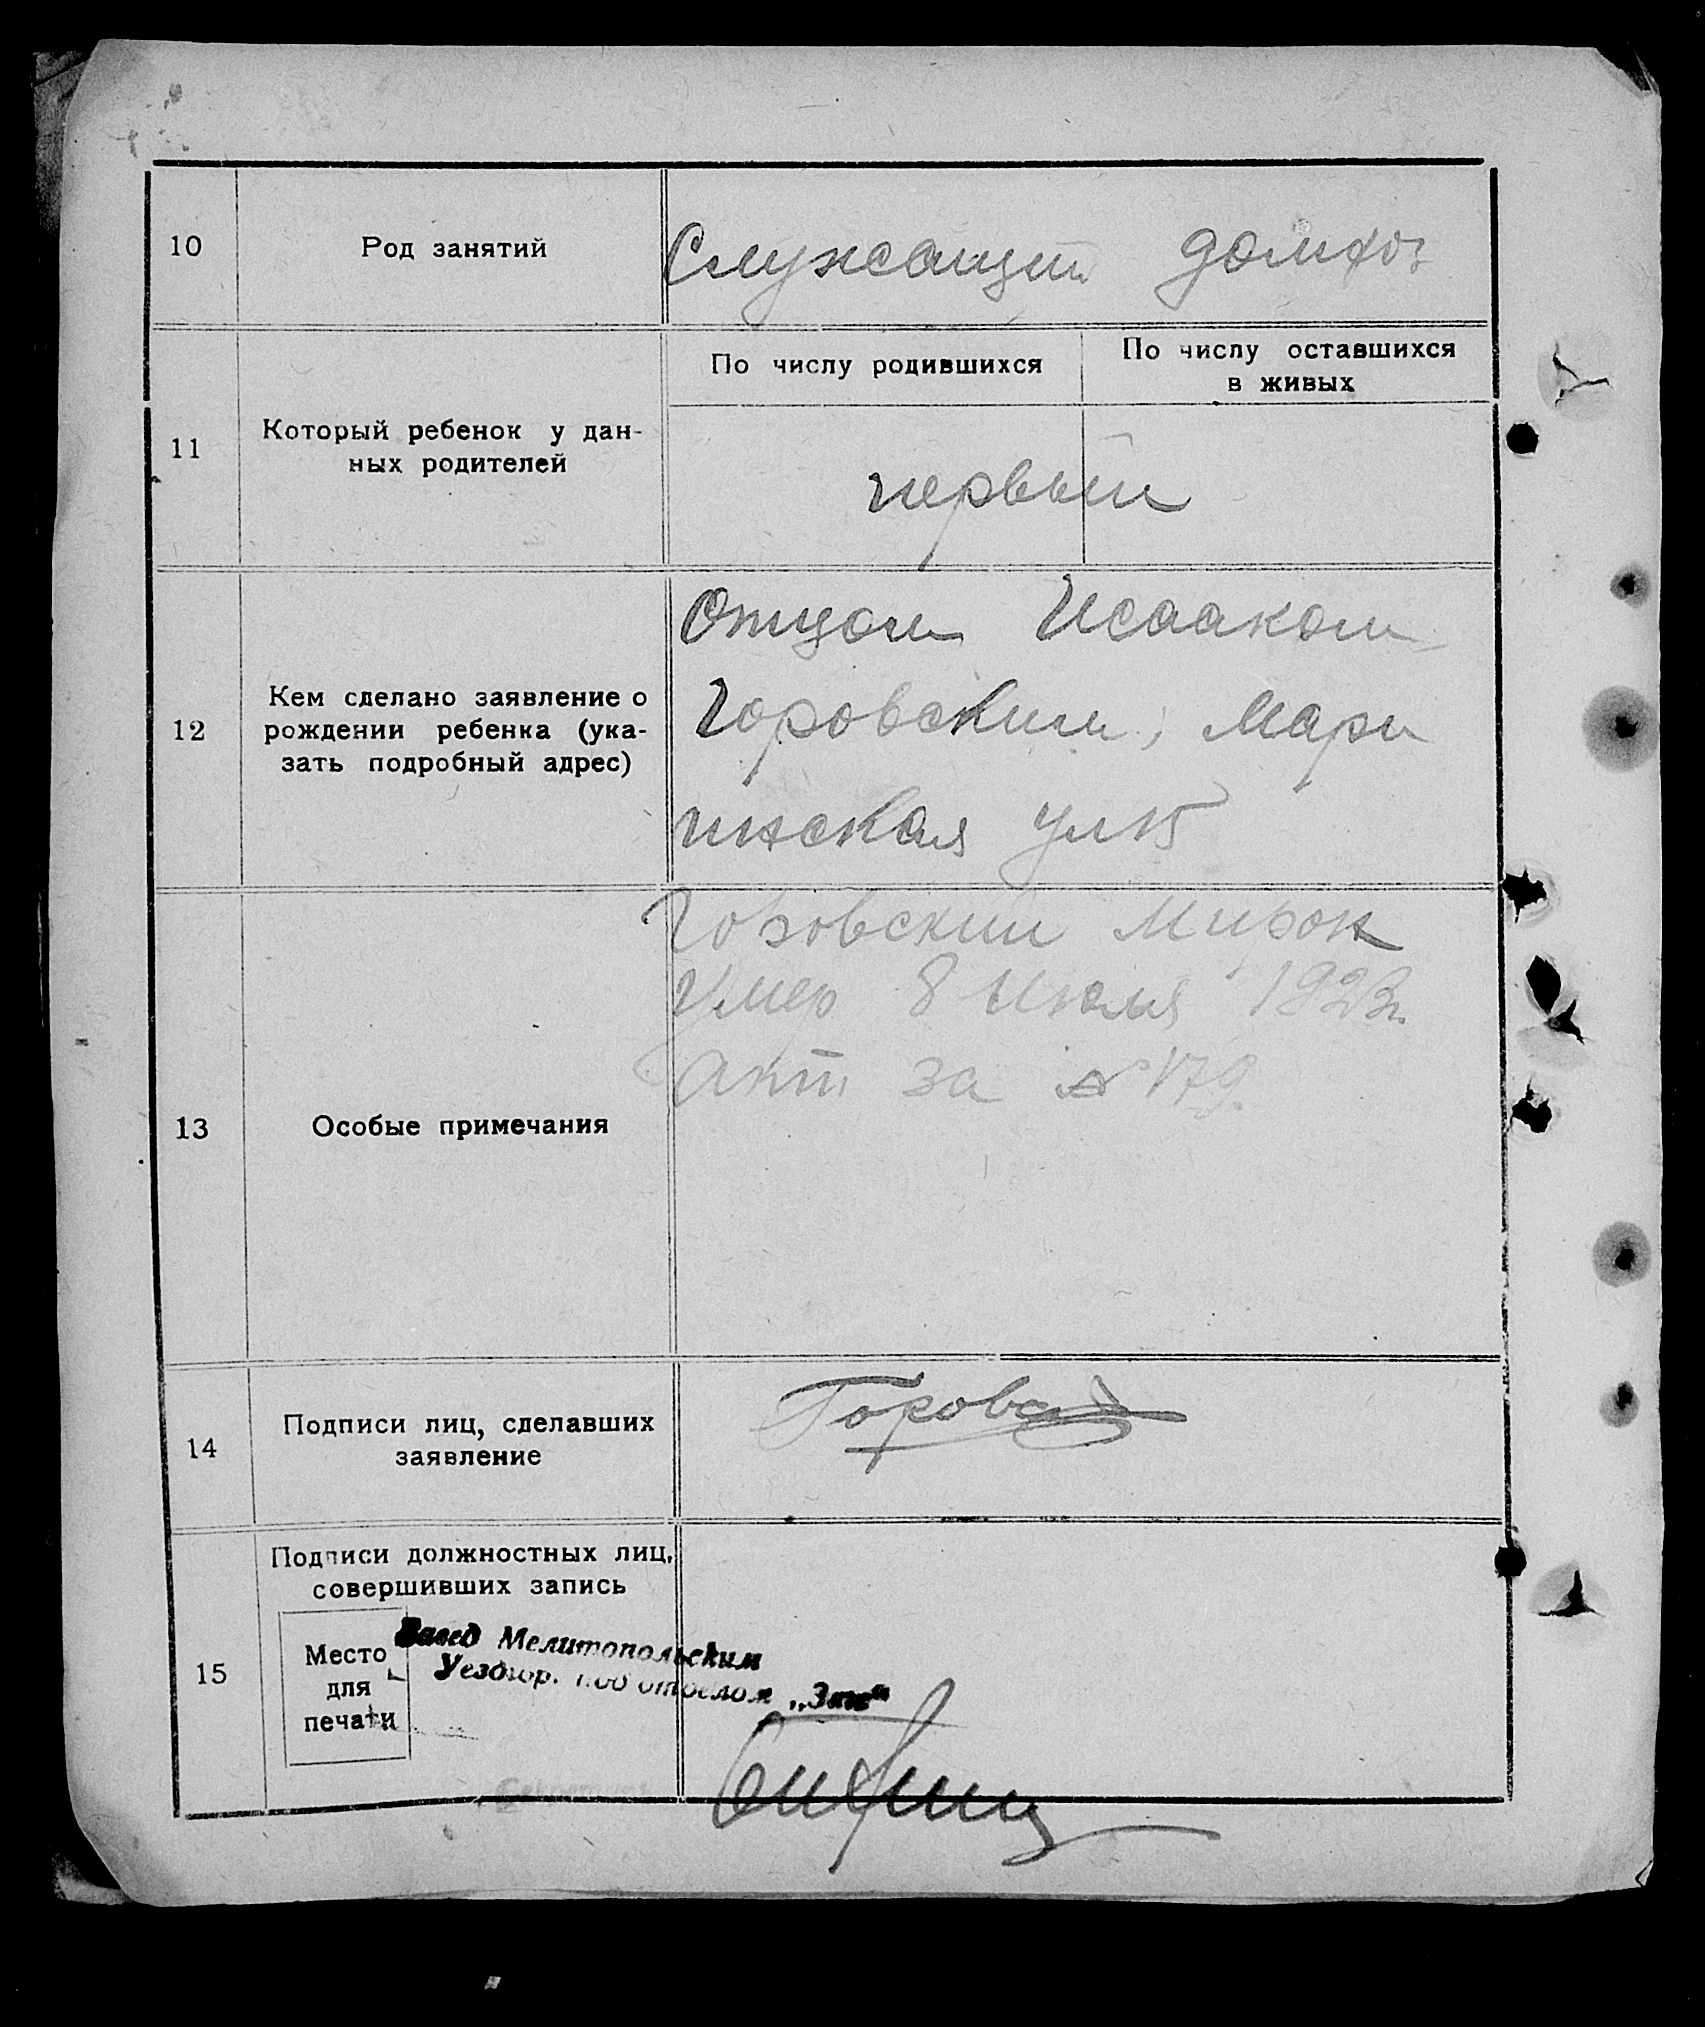 10
Род занятий
Служащий домхоз
11
Который ребенок у дан-
ных родителей
По числу родившихся
По числу оставшихся
в живых
первый
12
Кем сделано заявление о
рождении ребенка (ука-
зать подробный адрес)
Отцом Исааком
Горовским, Мари
инская ул 15
13
Особые примечания
Горовский Мирон
умер 8 Июля 1923г.
акт за № 179.
14
Подписи лиц, сделавших
заявление
Горовс
15
Подписи должностных лиц,
совершивших запись
Место
для
печати
Завед Мелитопольским
Уездгор. подотделом „Загс“